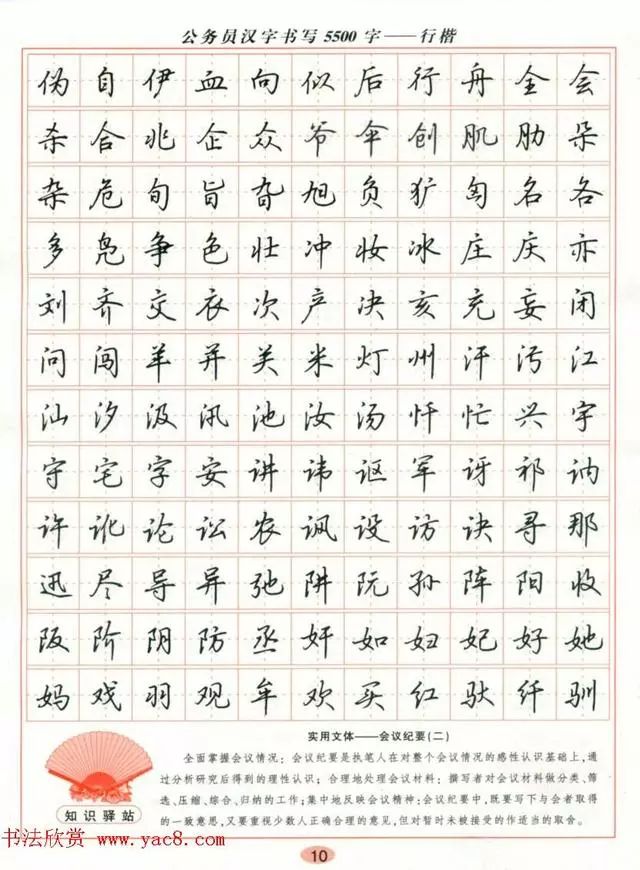 公务员汉字书写5500字——行楷
伪自伊血向似后行舟全会
杀合兆企众爷伞创肌肋朵
杂危旬旨旮旭负犷匈名各
多凫争色壮冲妆冰庄庆亦
刘齐交衣次产决亥充妄闭
问闯羊并关米灯州汗污江
汕汐汲汛池汝汤忏忙兴宇
守宅字安讲讳讴军讶祁讷
许讹论讼农讽设访诀寻那
迅尽导异弛阱阮孙阵阳收
阪阶阴防丞奸如妇妃好她
妈戏羽观牟欢买红驮纤驯
实用文体——会议纪要(二)
全面掌握会议情况；会议纪要是执笔人在对整个会议情况的感性认识基础上,通
过分析研究后得到的理性认识；合理地处理会议材料：撰写者对会议材料做分类、筛
选、压缩、综合、归纳的工作；集中地反映会议精神：会议纪要中,既要写下与会者取得
的一致意思,又要重视少数人正确合理的意见,但对暂时未被接受的作适当的取舍。
知识驿站
书法欣赏 www.yac8.com
10